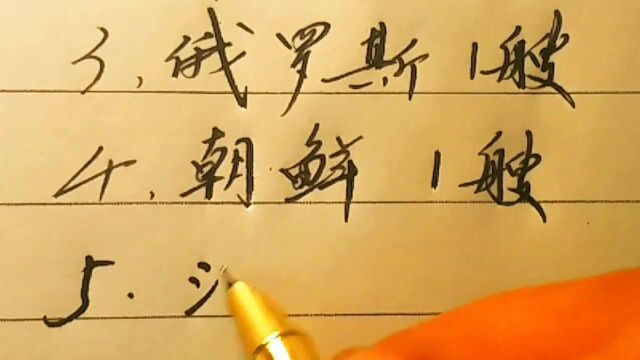 3、俄罗斯1艘
4、朝鲜1艘
5、